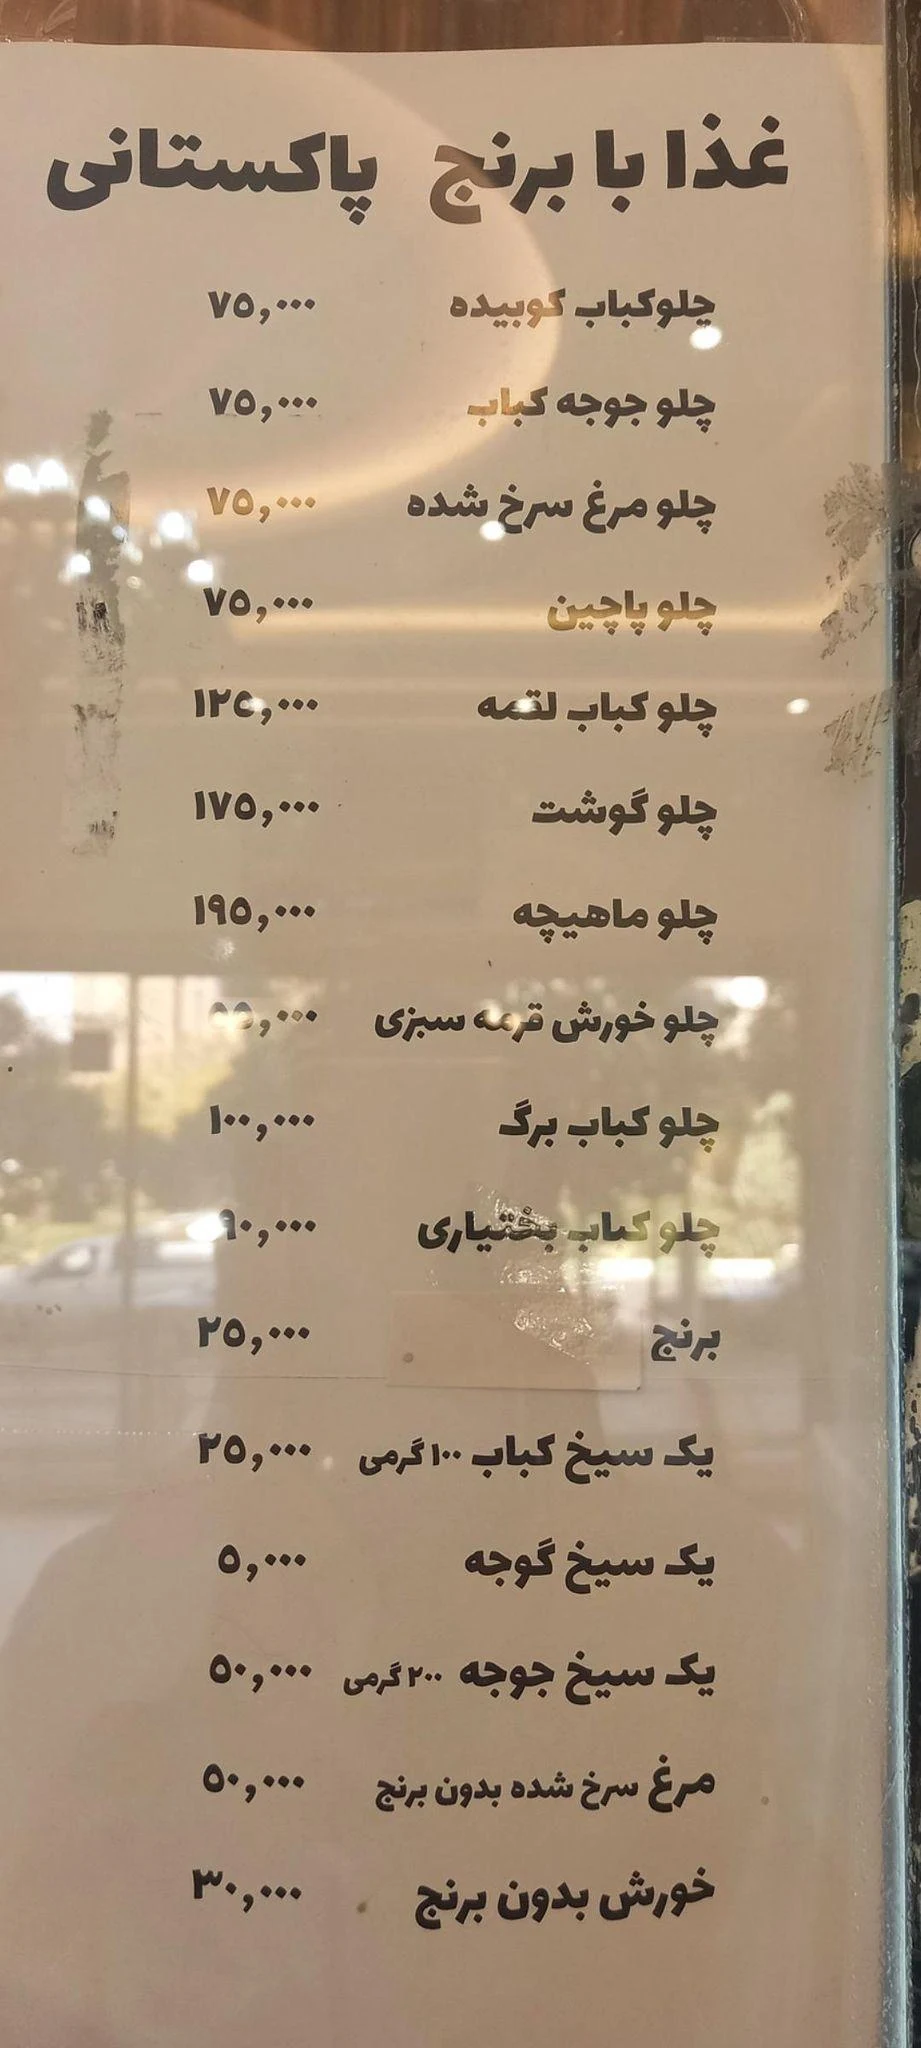 غذا با برنج پاکستانی
چلوکباب کوبیده ۷۵,۰۰۰
چلو جوجه کباب ۷۵,۰۰۰
چلو مرغ سرخ شده ۷۵,۰۰۰
چلو پاچین ۷۵,۰۰۰
چلو کباب لقمه ۱۲۵,۰۰۰
چلو گوشت ۱۷۵,۰۰۰
چلو ماهیچه ۱۹۵,۰۰۰
چلو خورش قرمه سبزی ۵۵,۰۰۰
چلو کباب برگ ۱۰۰,۰۰۰
چلو کباب بختیاری ۹۰,۰۰۰
برنج ۲۵,۰۰۰
یک سیخ کباب ۱۰۰ گرمی ۲۵,۰۰۰
یک سیخ گوجه ۵,۰۰۰
یک سیخ جوجه ۲۰۰ گرمی ۵۰,۰۰۰
مرغ سرخ شده بدون برنج ۵۰,۰۰۰
خورش بدون برنج ۳۰,۰۰۰